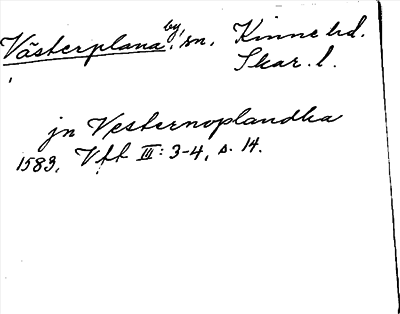 Västerplana by, sn. Kinne hd.
Skar. l.
jn Vesternoplandka
1583, Vft III: 3-4, s. 14.